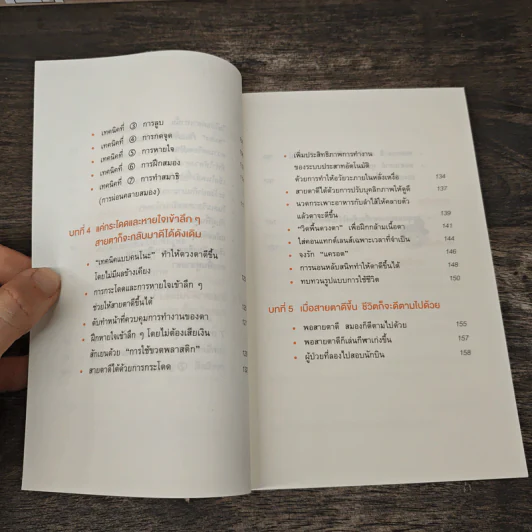 • เทคนิคที่ ③ การลูบ
• เทคนิคที่ ④ การกดจุด
• เทคนิคที่ ⑤ การหายใจ
• เทคนิคที่ ⑥ การฝึกสมอง
• เทคนิคที่ ⑦ การทำสมาธิ
(การผ่อนคลายสมอง)
บทที่ 4 แค่กระโดดและหายใจเข้าลึก ๆ
สายตาก็จะกลับมาดีได้ดังเดิม
• "เทคนิคแบบคนโนะ" ทำให้ดวงตาดีขึ้น
โดยไม่มีผลข้างเคียง
• การกระโดดและการหายใจเข้าลึก ๆ
ช่วยให้สายตาดีขึ้นได้
• ตับทำหน้าที่ควบคุมการทำงานของตา
• ฝึกหายใจเข้าลึก ๆ โดยไม่ต้องเสียเงิน
สักเยนด้วย "การใช้ขวดพลาสติก"
• สายตาดีได้ด้วยการกระโดด
• เพิ่มประสิทธิภาพการทำงาน
ของระบบประสาทอัตโนมัติ
ด้วยการทำให้อวัยวะภายในหลั่งเหงื่อ 134
• สายตาดีได้ด้วยการปรับบุคลิกภาพให้ดูดี 137
• นวดกระเพาะอาหารกับลำไส้ให้คลายตัว
แล้วตาจะดีขึ้น 139
• "วิดพื้นดวงตา" เพื่อฝึกกล้ามเนื้อตา 141
• ใส่คอนแทกต์เลนส์เฉพาะเวลาที่จำเป็น 144
• จงรัก "แครอต" 146
• การนอนหลับสนิททำให้ตาดีขึ้นได้ 148
• ทบทวนรูปแบบการใช้ชีวิต 150
บทที่ 5 เมื่อสายตาดีขึ้น ชีวิตก็จะดีตามไปด้วย
• พอสายตาดี สมองก็ดีตามไปด้วย 155
• พอสายตาดีก็เล่นกีฬาเก่งขึ้น 157
• ผู้ป่วยที่ลองไปสอบนักบิน 158